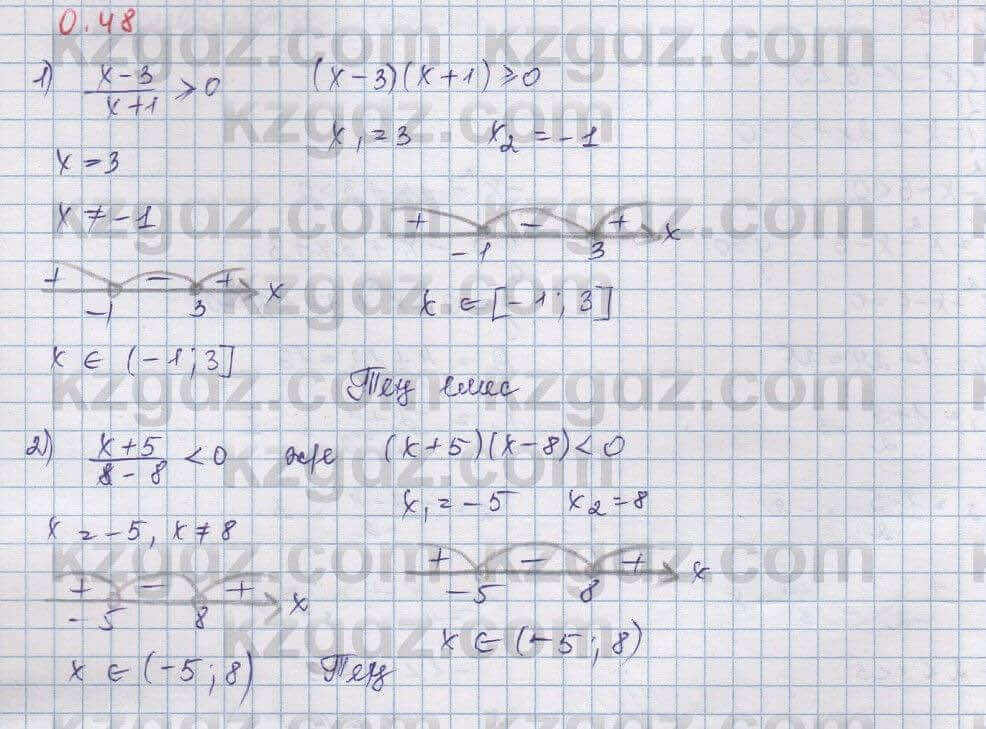 0.48
1) (x-3)/(x+1) ≥ 0    (x-3)(x+1) ≥ 0
x = 3    x₁ = 3    x₂ = -1
x ≠ -1
+ - + x
-1 3
+ - + x
-1 3
x ∈ [-1; 3]
x ∈ (-1; 3]
Тең емес
2) (x+5)/(8-8) < 0 және (x+5)(x-8) < 0
x₁ = -5    x₂ = 8
x = -5, x ≠ 8
+ - + x
-5 8
+ - + x
-5 8
x ∈ (-5; 8)
x ∈ (-5; 8)    Тең
kzgdz.com